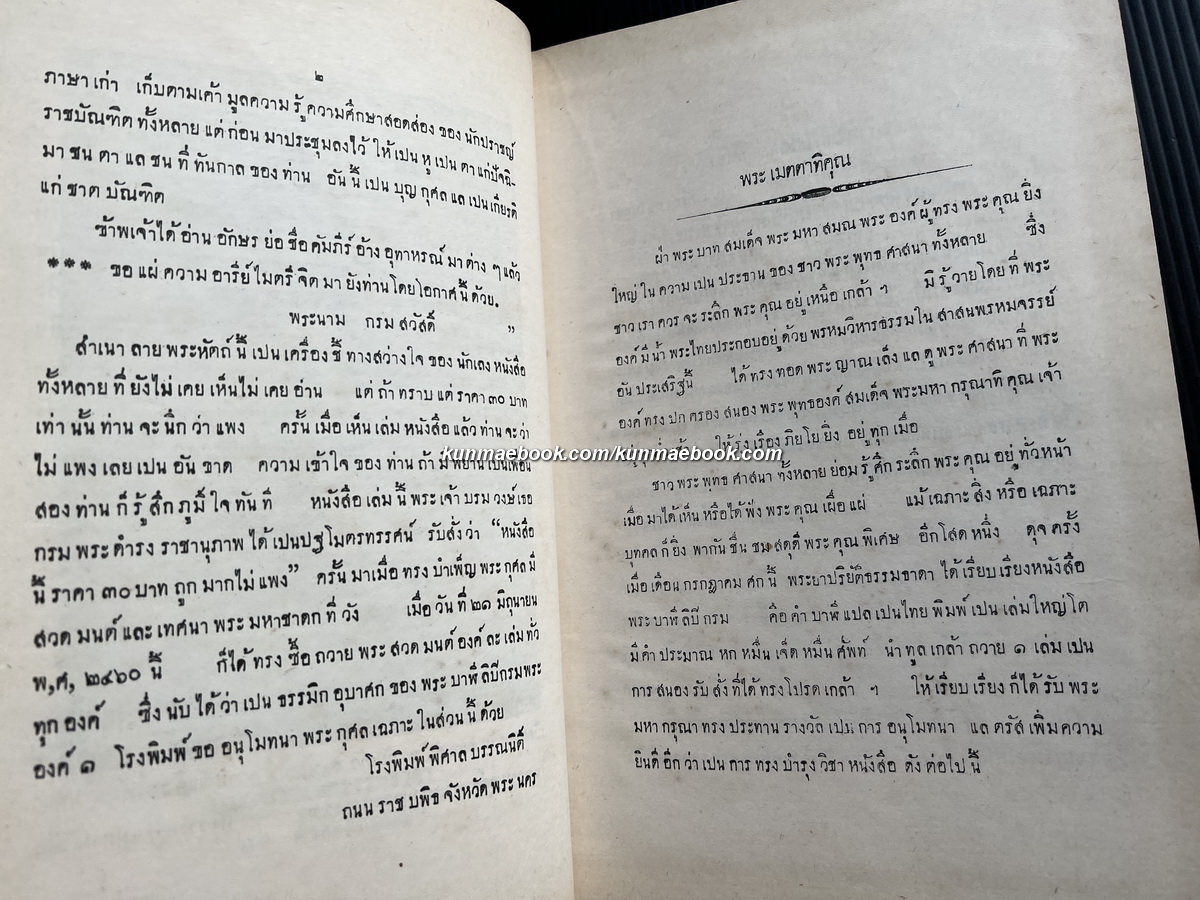 ๒
ภาษา เก่า เก็บตามเค้า มูลความ รู้ ความศึกษาสอดส่อง ของ นักปราชญ์
ราชบัณฑิต ทั้งหลาย แต่ ก่อน มาประชุมลงไว้ ให้ เปน หู เปน ตา แก่ปัจฉิ-
มา ชน ตา แล ชน ที่ ทันกาล ของ ท่าน อัน นี้ เปน บุญ กุศล แล เปน เกียรติ
แก่ ชาต บัณฑิต
ข้าพเจ้าได้ อ่าน อักษร ย่อ ชื่อ คัมภีร์ อ้าง อุทาหรณ์ มา ต่าง ๆ แล้ว
*** ขอ แผ่ ความ อารีย์ ไมตรี จิต มา ยังท่าน โดย โอกาศ นี้ ด้วย.
พระนาม กรม สวัสดิ์ ”
สำเนา ลาย พระหัตถ์ นี้ เปน เครื่อง ชี้ ทางสว่าง ใจ ของ นักเลง หนังสือ
ทั้งหลาย ที่ ยังไม่ เคย เห็นไม่ เคย อ่าน แต่ ถ้า ทราบ แต่ ราคา ๓๐ บาท
เท่า นั้น ท่าน จะ นึก ว่า แพง ครั้น เมื่อ เห็น เล่ม หนังสือ แล้ว ท่าน จะ ว่า
ไม่ แพง เลย เปน อัน ขาด ความ เข้า ใจ ของ ท่าน ถ้า มี พยาน เปนเพื่อน
สอง ท่าน ก็ รู้ สึก ภูมิ์ ใจ ทัน ที หนังสือ เล่ม นี้ พระ เจ้า บรม วงษ์ เธอ
กรม พระ ดำรง ราชานุภาพ ได้ เปนปฐโมตรทรรศน์ รับสั่ง ว่า “หนังสือ
นี้ ราคา ๓๐ บาท ถูก มากไม่ แพง” ครั้น มาเมื่อ ทรง บำเพ็ญ พระ กุศล มี
สวด มนต์ และ เทศนา พระ มหาชาดก ที่ วัง เมื่อ วัน ที่ ๒๑ มิถุนายน
พ,ศ, ๒๔๖๐ นี้ ก็ได้ ทรง ซื้อ ถวาย พระ สวด มนต์ องค์ ละ เล่ม ทั่ว
ทุก องค์ ซึ่ง นับ ได้ ว่า เปน ธรรมิก อุบาศก ของ พระ บาฬี ลิปีกรมพระ
องค์ ๑ โรงพิมพ์ ขอ อนุโมทนา พระ กุศล เฉภาะ ในส่วน นี้ ด้วย
โรงพิมพ์ พิศาล บรรณนิติ์
ถนน ราช บพิธ จังหวัด พระ นคร
พระ เมตตาทิคุณ
ฝ่า พระ บาท สมเด็จ พระ มหา สมณ พระ องค์ ผู้ ทรง พระ คุณ ยิ่ง
ใหญ่ ใน ความ เปน ประธาน ของ ชาว พระ พุทธ ศาสนา ทั้งหลาย ซึ่ง
ชาว เรา ควร จะ ระลึก พระ คุณ อยู่ เหนือ เกล้า ฯ มิ รู้ วายโดย ที่ พระ
องค์ มี น้ำ พระไทยประกอบอยู่ ด้วย พรหมวิหารธรรมใน สาสนพรหมจรรย์
อัน ประเสริฐนี้ ได้ ทรง ทอด พระ ญาณ เล็ง แล ดู พระ ศาสนา ที่ พระ
องค์ ทรง ปก ครอง สนอง พระ พุทธองค์ สมเด็จ พระมหา กรุณาทิ คุณ เจ้า
ให้ รุ่ง เรือง ภิยโย ยิ่ง อยู่ ทุก เมื่อ
ชาว พระ พุทธ ศาสนา ทั้งหลาย ย่อมรู้ สึก ระลึก พระ คุณ อยู่ ทั่วหน้า
เมื่อ มาได้ เห็น หรือได้ ฟัง พระ คุณ เผื่อ แผ่ แม้ เฉภาะ สิ่ง หรือ เฉภาะ
บุทคล ก็ ยิ่ง พากัน ชื่น ชม สดุดี พระ คุณ พิเศษ อีก โสด หนึ่ง ดุจ ครั้ง
เมื่อ เดือน กรกฎาคม ศก นี้ พระยาปริยัติธรรมธาดา ได้ เรียบ เรียงหนังสือ
พระ บาฬี ลิปี กรม คือ คำ บาฬี แปล เปนไทย พิมพ์ เปน เล่มใหญ่ โต
มี คำ ประมาณ หก หมื่น เจ็ด หมื่น ศัพท์ นำ ทูล เกล้า ถวาย ๑ เล่ม เปน
การ สนอง รับ สั่ง ที่ได้ ทรงโปรด เกล้า ฯ ให้ เรียบ เรียง ก็ได้ รับ พระ
มหา กรุณา ทรง ประทาน รางวัล เปน การ อนุโมทนา แล ตรัส เพิ่ม ความ
ยินดี อีก ว่า เปน การ ทรง บำรุง วิชา หนังสือ ดัง ต่อไป นี้
kunmaebook.com/kunmaebook.com